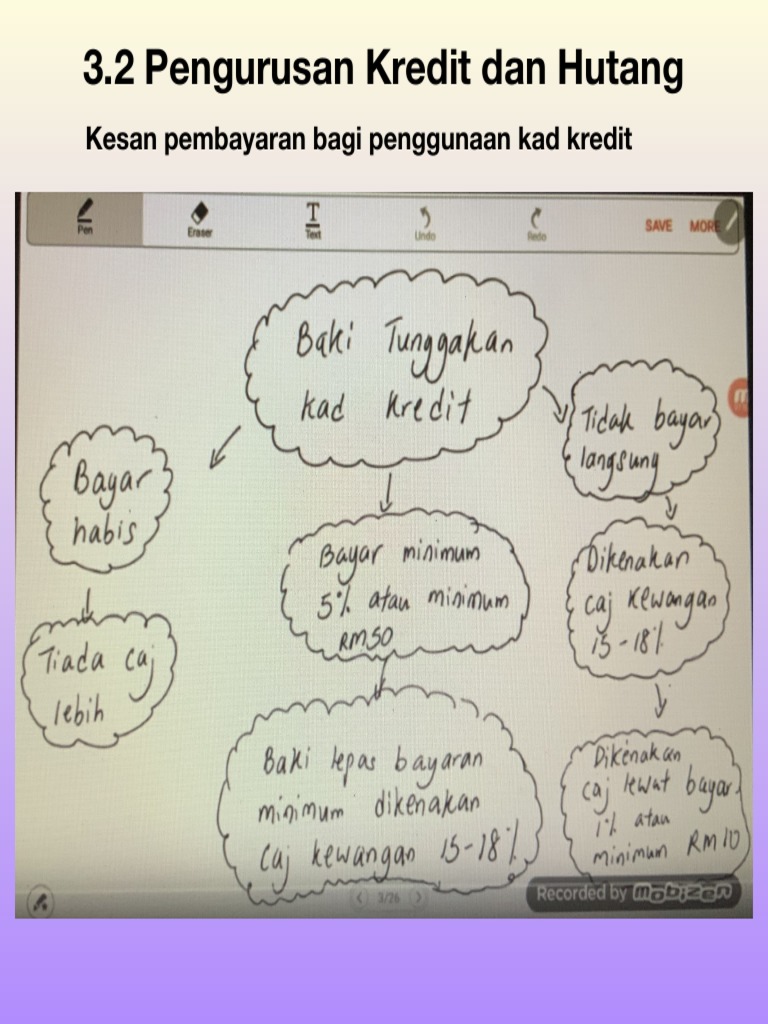 3.2 Pengurusan Kredit dan Hutang
Kesan pembayaran bagi penggunaan kad kredit
Pen
Eraser
T
Text
Undo
Redo
SAVE
MORE
Baki Tunggakan
kad kredit
Bayar
habis
Tiada caj
lebih
Bayar minimum
5% atau minimum
RM50
Baki lepas bayaran
minimum dikenakan
caj kewangan 15-18%
Tidak bayar
langsung
Dikenakan
caj kewangan
15-18%
Dikenakan
caj lewat bayar
1% atau
minimum RM10
3/26
Recorded by mobizen